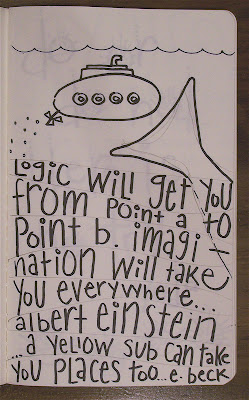 Logic will get you
from Point a to
Point b. imagi-
nation will take
you everywhere...
albert einstein
...a yellow sub can take
you places too...e. beck